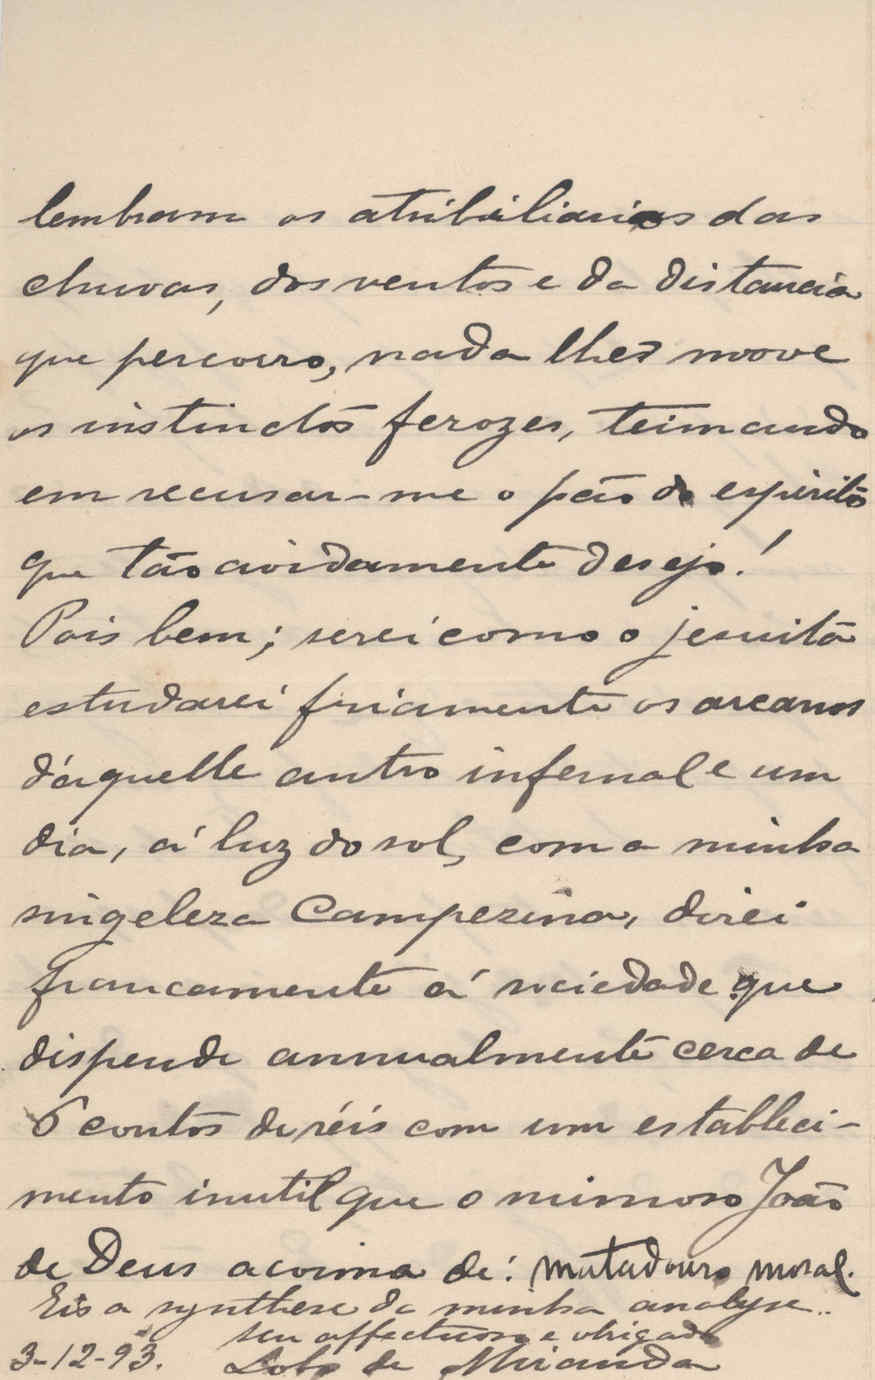 lembram os atribiliarios das
chuvas, dos ventos e da distancia
que percorro, nada lhes move
os instinctos ferozes, teimando
em recusar-me o pão do espirito
que tão avidamente desejo!
Pois bem; serei como o jesuita
estudarei friamente os arcanos
d'aquelle antro infernal e um
dia, á luz do sol, com a minha
singeleza campezina, direi
francamente á sociedade que
dispende annualmente cerca de
6 contos de réis com um estableci-
mento inutil que o mimoso João
de Deus acoima de: matadouro moral.
Eis a synthese da minha analyse..
Seu affectuoso e obrigado
3-12-93. Lobo de Miranda